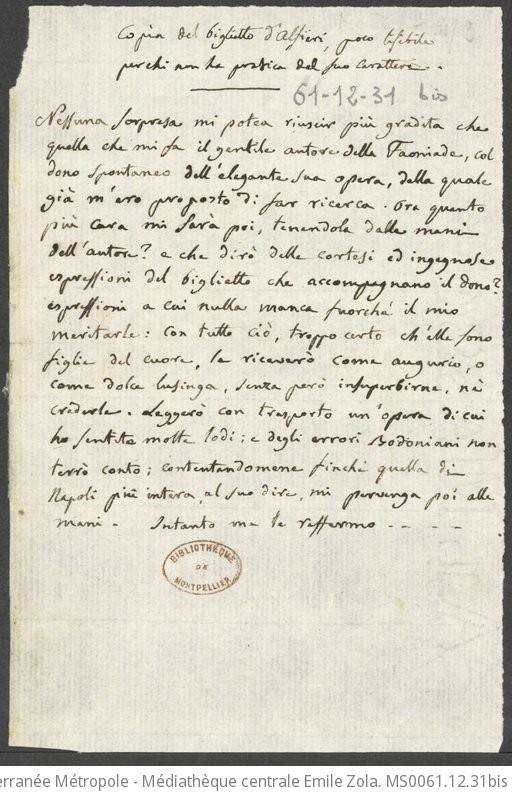 Copia del biglietto d'Alfieri, poco lesibile
perchi non ha pratica del suo carattere.
61-12-31 bis
Nessuna sorpresa mi potea riuscir più gradita che
quella che mi fa il gentile autore della Faoniade, col
dono spontaneo dell'elegante sua opera, della quale
già m'ero proposto di far ricerca. Ora quanto
più cara mi sarà poi, tenendola dalle mani
dell'autore? e che dirò delle cortesi ed ingegnose
espressioni del biglietto che accompagnano il dono?
espressioni a cui nulla manca fuorchè il mio
meritarle: Con tutto ciò, troppo certo ch'elle sono
figlie del cuore, le riceverò come augurio, o
come dolce lusinga, senza però insuperbirne, nè
crederle. Leggerò con trasporto un'opera di cui
ho sentito molte lodi; e degli errori Bodoniani non
terrò conto; contentandomene finchè quella di
Napoli più intera, al suo dire, mi pervenga poi alle
mani. Intanto me le raffermo - - - - -
BIBLIOTHÈQUE
DE
MONTPELLIER
erranée Métropole - Médiathèque centrale Emile Zola. MS0061.12.31bis